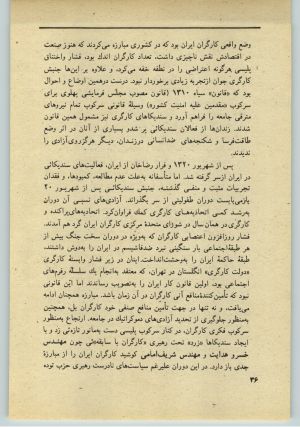 وضع واقعی کارگران ایران بود که در کشوری مبارزه می‌کردند که هنوز صنعت
در اقتصادش نقش ناچیزی داشت، تعداد کارگران اندك بود، فشار واختناق
پلیسی هرگونه اعتراضی را در نطفه خفه می‌کرد، و علاوه بر اینها جنبش
کارگری جوان ازتجربه زیادی برخوردار نبود. درست درهمین اوضاع و احوال
بود که «قانون» سیاه ۱۳۱۰ (قانون مصوب مجلس فرمایشی پهلوی برای
سرکوب «مقدمین علیه امنیت کشور») وسیلهٔ قانونی سرکوب تمام نیروهای
مترقی جامعه را فراهم آورد و سندیکاهای کارگری نیز مشمول همین قانون
شدند. زندان‌ها از فعالان سندیکائی پر شدو بسیاری از آنان در اثر وضع
طاقت‌فرسا و شکنجه‌های ضدانسانی درزندان، دیگر هرگزروی‌آزادی را
ندیدند.
پس از شهریور ۱۳۲۰ و فرار رضاخان از ایران، فعالیت‌های سندیکائی
در ایران ازسر گرفته شد. اما متأسفانه به‌علت عدم مطالعه، کمبودها، و فقدان
تجربیات مثبت و منفی گذشته، جنبش سندیکائی پس از شهریور ۲۰
بازمی‌بایست دوران طفولیتی از سر بگذراند. آزادی‌های نسبی آن دوران
به‌رشد کمی اتحادیه‌های کارگری کمك فراوان‌کرد. اتحادیه‌های‌پراکنده و
کارگری در همان سال در شورای متحده مرکزی کارگران ایران گرد هم آمدند.
فشار روزافزون اعتصابی کارگران که به‌ویژه در دوران سخت جنگ بیش از
هر طبقهٔ‌اجتماعی بار سنگینی نبرد ضدفاشیسم در ایران را به‌دوش داشتند،
طبقهٔ حاکمهٔ ایران را به‌وحشت‌انداخت. اینان در زیر فشار وابستهٔ کارگری
«دولت کارگری» انگلستان در تهران، که معتقد به‌انجام یك سلسله رفرم‌های
اجتماعی بود، اولین قانون کار ایران را به‌تصویب رساندند اما این قانونی
نبود که تأمین‌کنندهٔ‌منافع آنی کارگران در آن زمان باشد. مبارزه همچنان ادامه
می‌یافت، و نه تنها در جهت تأمین منافع صنفی خود کارگران بل، همچنین
به‌منظور جلوگیری از تحدید آزادی‌های دموکراتیك در جامعه. ارتجاع به‌منظور
سرکوب فکری کارگران، در کنار سرکوب پلیسی دست به‌مانور تازه‌ئی زد و با
ایجاد سندیکاها «زرد» تحت رهبری «کارگران با سابقه»ئی چون مهندس
خسرو هدایت و مهندس شریف‌امامی کوشید کارگران ایران را از مبارزهٔ
جدی باز دارد. در این دوران علیرغم سیاست‌های نادرست رهبری حزب توده
۳۶